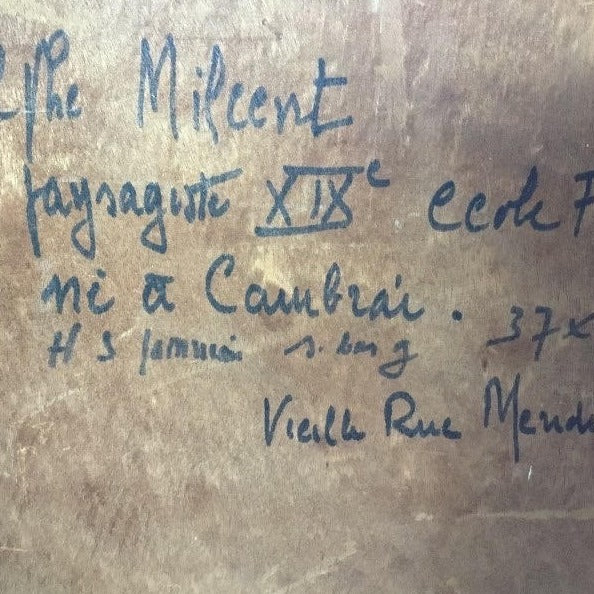 lphe Milcent
paysagiste XIXe ecole F
né a Cambrai.
H S panneau s. bas g 37x
Vieille Rue Mend